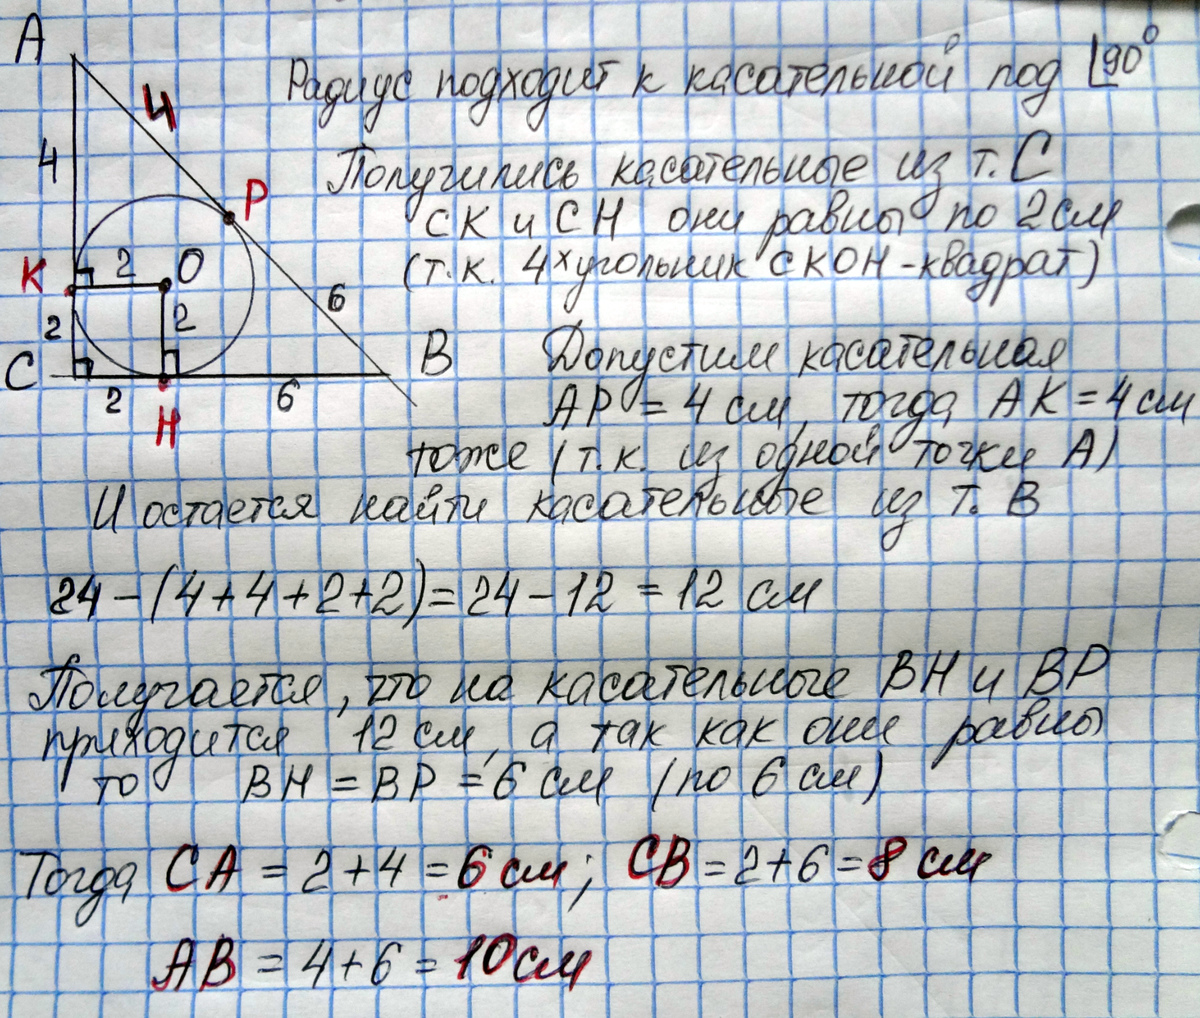 A
4
4
P
K
2
O
2
2
C
2
H
6
6
B
Радиус подходит к касательной под ∟90°
Получились касательные из т. С
СК и СН они равны по 2 см
(т.к. 4х угольник СКОН - квадрат)
Допустим касательная
АР = 4 см, тогда АК = 4 см
тоже (т.к. из одной точки А)
И остается найти касательные из т. В
24 - (4+4+2+2) = 24 - 12 = 12 см
Получается, что на касательные ВН и ВР
приходится 12 см, а так как они равны
то ВН = ВР = 6 см (по 6 см)
Тогда СА = 2+4 = 6 см; СВ = 2+6 = 8 см
АВ = 4+6 = 10 см